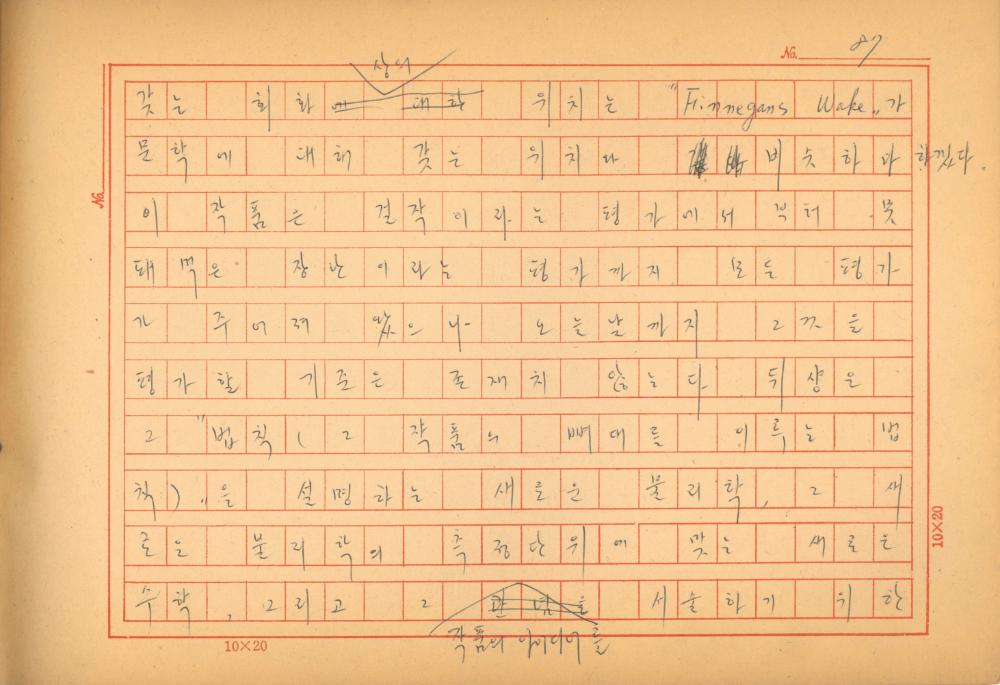 No. 87
상의
갖는 회화에 대한 위치는 "Finnegans Wake"가
문학에 대해 갖는 위치와 비슷하다 하겠다.
이 작품은 걸작이라는 평가에서 부터 못
돼먹은 장난이라는 평가까지 모든 평가
가 주어져 왔으나 오늘날까지 그것을
평가할 기준은 존재치 않는다. 뒤샹은
그 "법칙(그 작품의 뼈대를 이루는 법
칙)"을 설명하는 새로운 물리학, 그 새
로운 물리학의 측정단위에 맞는 새로운
수학, 그리고 그 관념을 서술하기 위한
작품의 아이디어를
No.
10×20
10×20